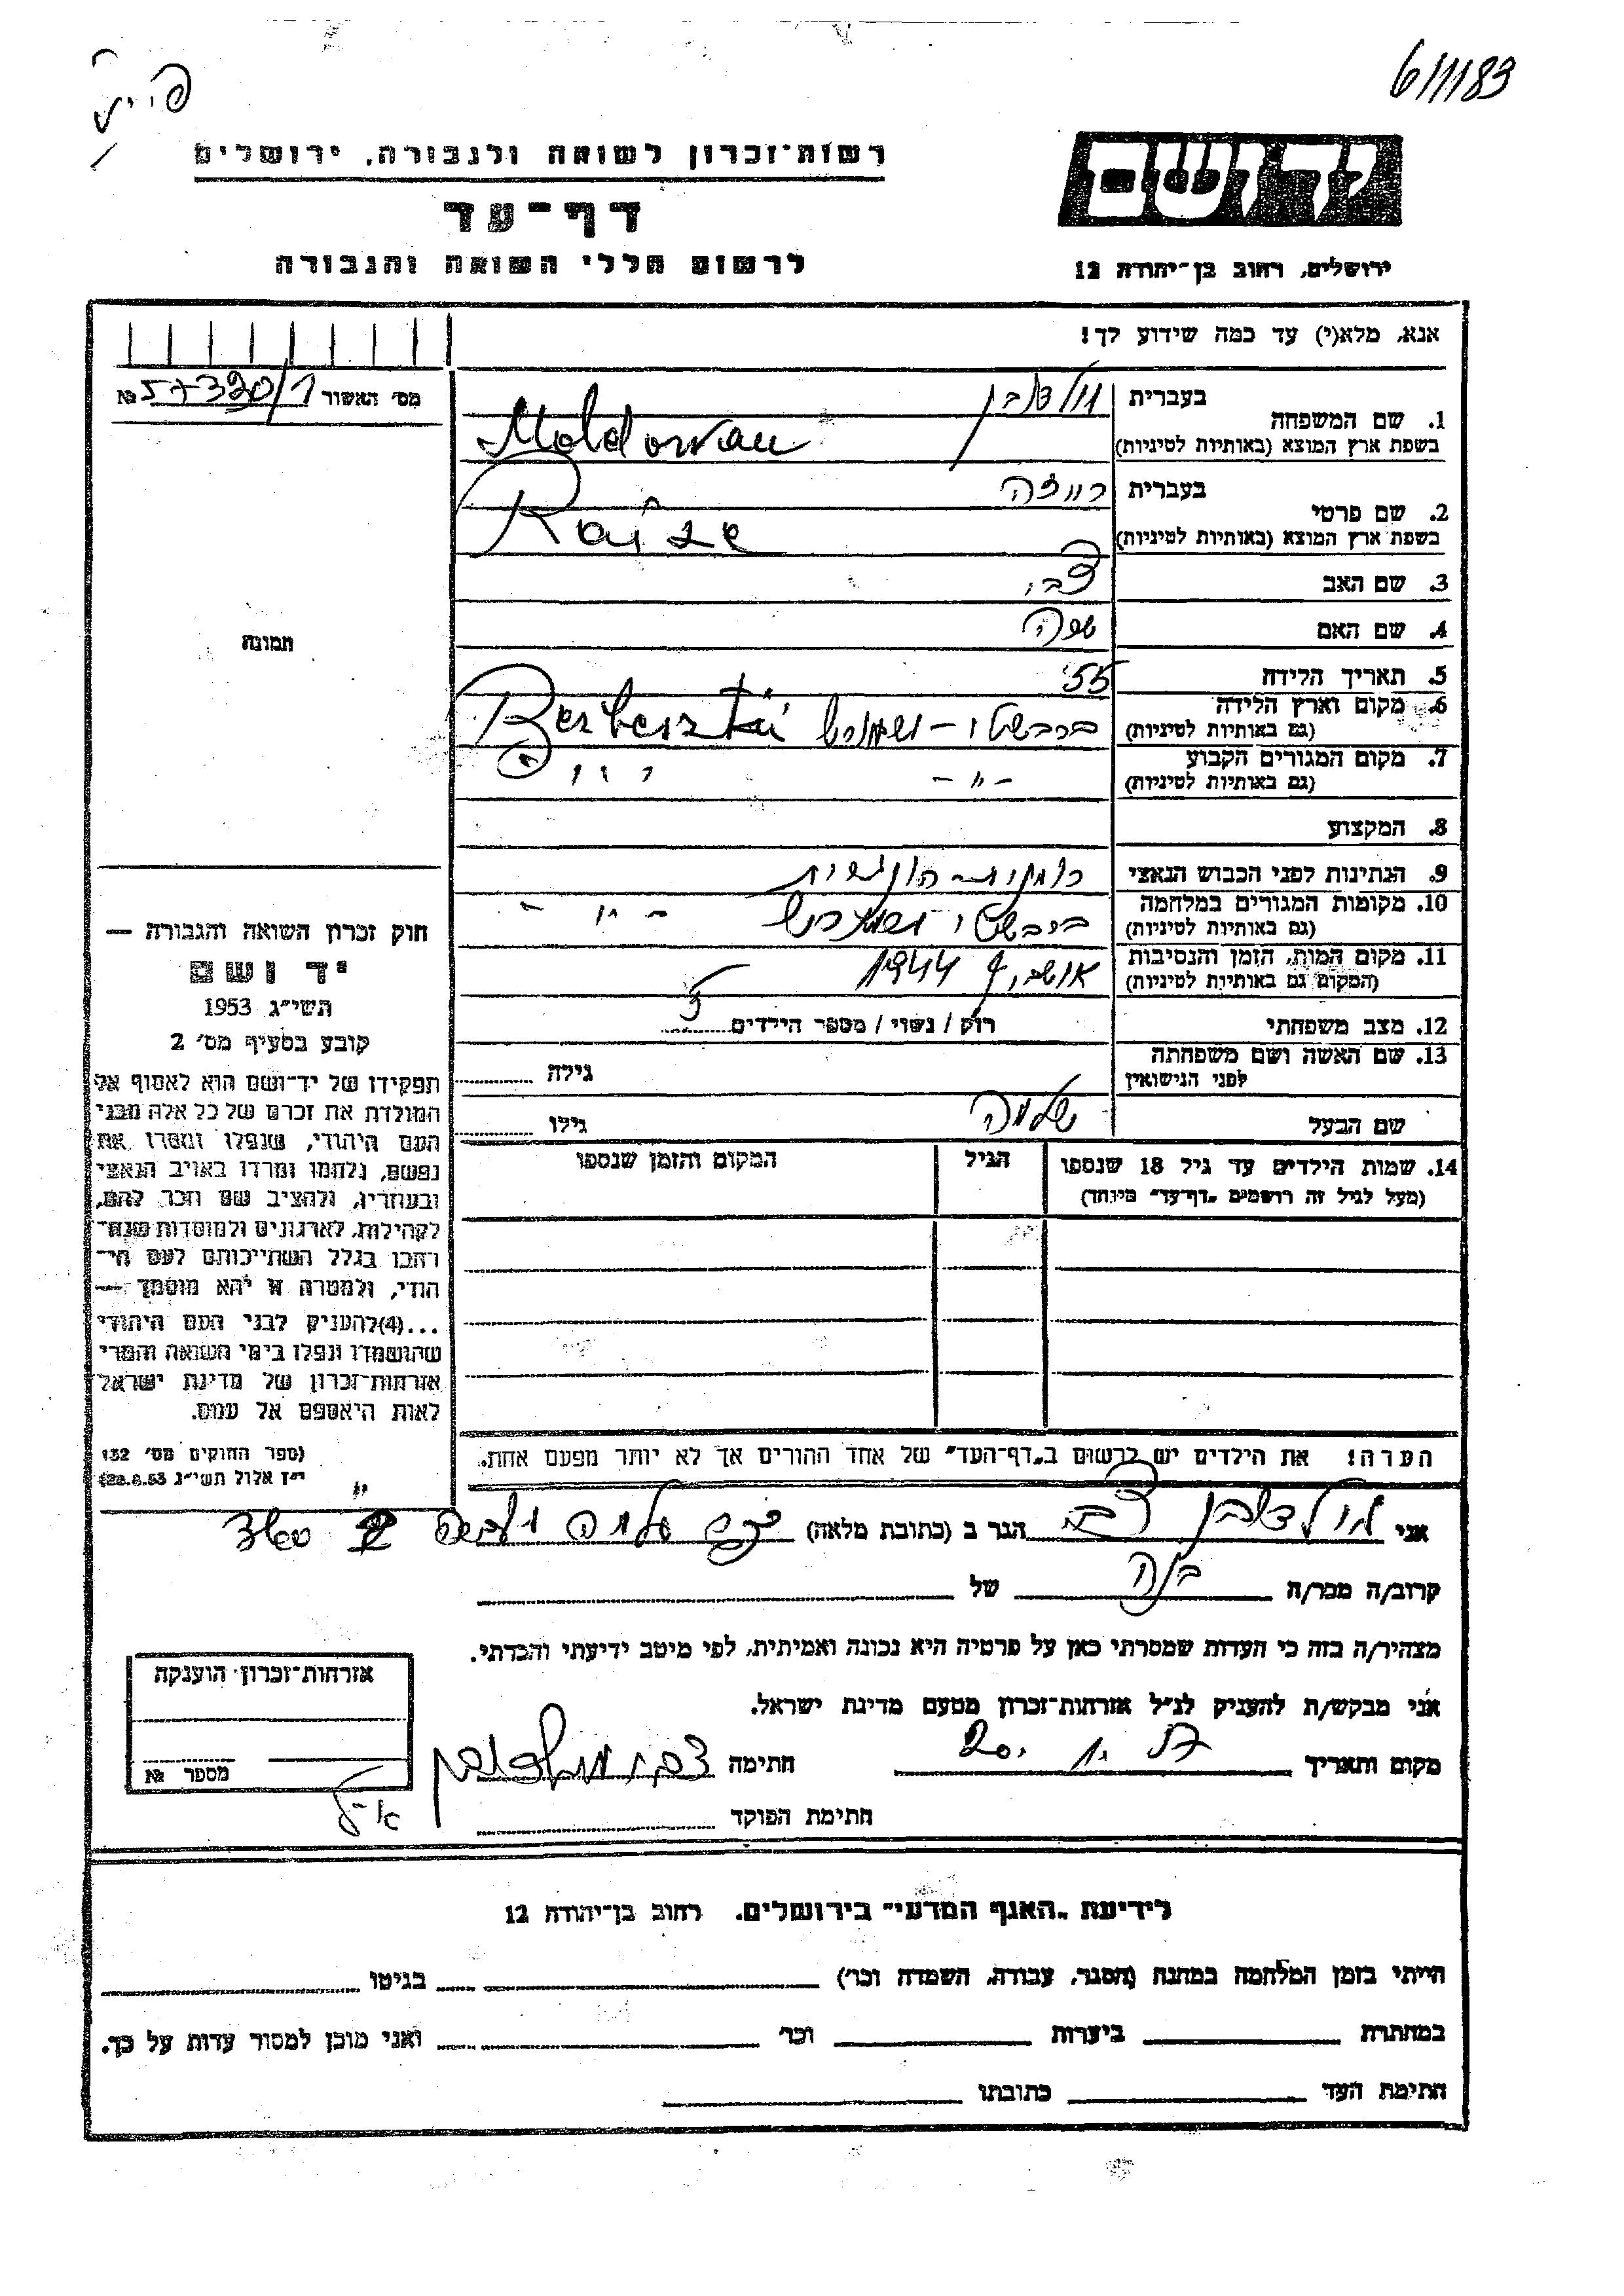 6/11/83
יד ושם
ירושלים, רחוב בן־יהודה 12
רשות־זכרון לשואה ולגבורה, ירושלים
דף־עד
לרשום חללי השואה והגבורה
אנא, מלא(י) עד כמה שידוע לך!
מס' האשור 57330/1 №
1. שם המשפחה
בעברית מולדובן
בשפת ארץ המוצא (באותיות לטיניות) Moldovan
2. שם פרטי
בעברית רויזה
בשפת ארץ המוצא (באותיות לטיניות) Raize
3. שם האב צבי
4. שם האם
5. תאריך הלידה 55
6. מקום וארץ הלידה
(גם באותיות לטיניות) ברבשטי - Berbesztü
7. מקום המגורים הקבוע
(גם באותיות לטיניות) -"-
8. המקצוע
9. הנתינות לפני הכבוש הנאצי
10. מקומות המגורים במלחמה
(גם באותיות לטיניות) ברבשטי -"-
11. מקום המות, הזמן והנסיבות
(המקום גם באותיות לטיניות) אושביץ 1944
12. מצב משפחתי רוק / נשוי / מספר הילדים
13. שם האשה ושם משפחתה
לפני הנישואין גילה
שם הבעל שלמה גילו
14. שמות הילדים עד גיל 18 שנספו הגיל המקום והזמן שנספו
(מעל לגיל זה רושמים „דף־עד" מיוחד)
הערה! את הילדים יש לרשום ב„דף־העד" של אחד ההורים אך לא יותר מפעם אחת.
תמונה
חוק זכרון השואה והגבורה —
יד ושם
תשי"ג 1953
קובע בסעיף מס' 2
תפקידו של יד־ושם הוא לאסוף אל
המולדת את זכרם של כל אלה מבני
העם היהודי, שנפלו ומסרו את
נפשם, נלחמו ומרדו באויב הנאצי
ובעוזריו, ולהציב שם וזכר להם,
לקהילות, לארגונים ולמוסדות שנח־
רבו בגלל השתייכותם לעם הי־
הודי, ולמטרה זו יהא מוסמך —
...(4) להעניק לבני העם היהודי
שהושמדו ונפלו בימי השואה והמרי
אזרחות־זכרון של מדינת ישראל
לאות היאספם אל עמם.
(ספר החוקים מס' 132
י"ז אלול תשי"ג 28.8.53)
אני מולדובן צבי הגר ב (כתובת מלאה)
קרוב/ה מכר/ה של
מצהיר/ה בזה כי העדות שמסרתי כאן על פרטיה היא נכונה ואמיתית, לפי מיטב ידיעתי והכרתי.
אני מבקש/ת להעניק לנ"ל אזרחות־זכרון מטעם מדינת ישראל.
מקום ותאריך חתימה צבי מולדובן
חתימת הפוקד
אזרחות־זכרון הוענקה
מספר №
לידיעת „האגף המדעי" בירושלים, רחוב בן־יהודה 12
הייתי בזמן המלחמה במחנה (הסגר, עבודה, השמדה וכו') בגיטו
במחתרת ביערות וכו' ואני מוכן למסור עדות על כך.
חתימת העד כתובתו